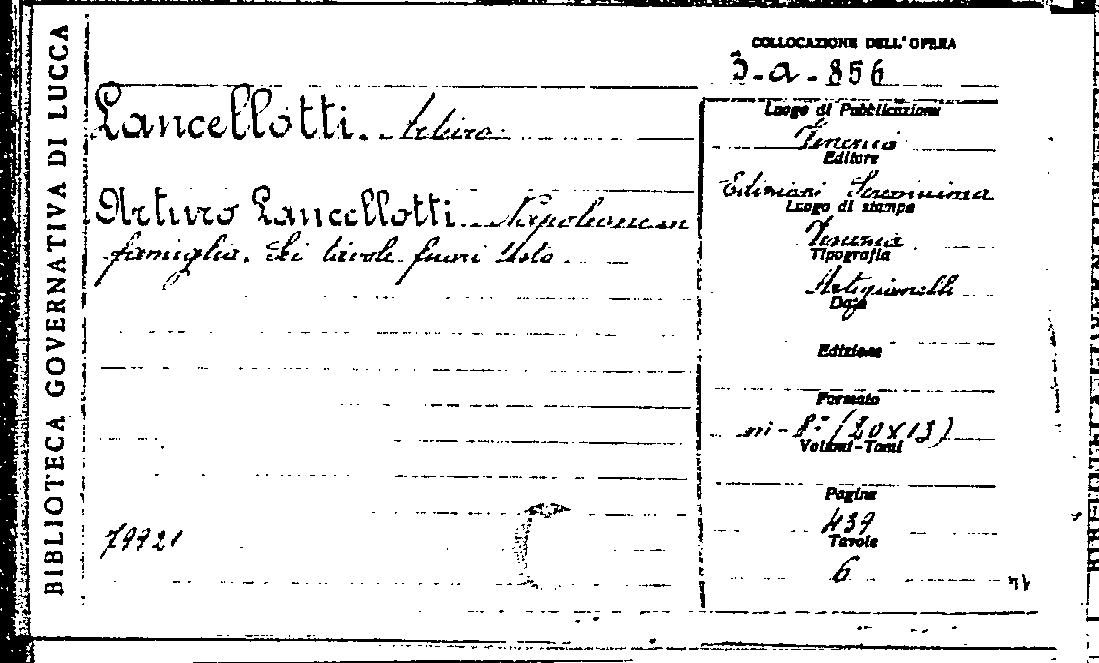 BIBLIOTECA GOVERNATIVA DI LUCCA
COLLOCAZIONE DELL'OPERA
3-a-856
Lancellotti. Arturo
Arturo Lancellotti. Napoleone in
famiglia. Sei tavole fuori testo.
79721
Luogo di Pubblicazione
Venezia
Editore
Edizioni Serenissima
Luogo di stampa
Venezia
Tipografia
Artigianelli
Data
Edizione
Formato
in-8° (20x13)
Volumi-Tomi
Pagine
439
Tavole
6